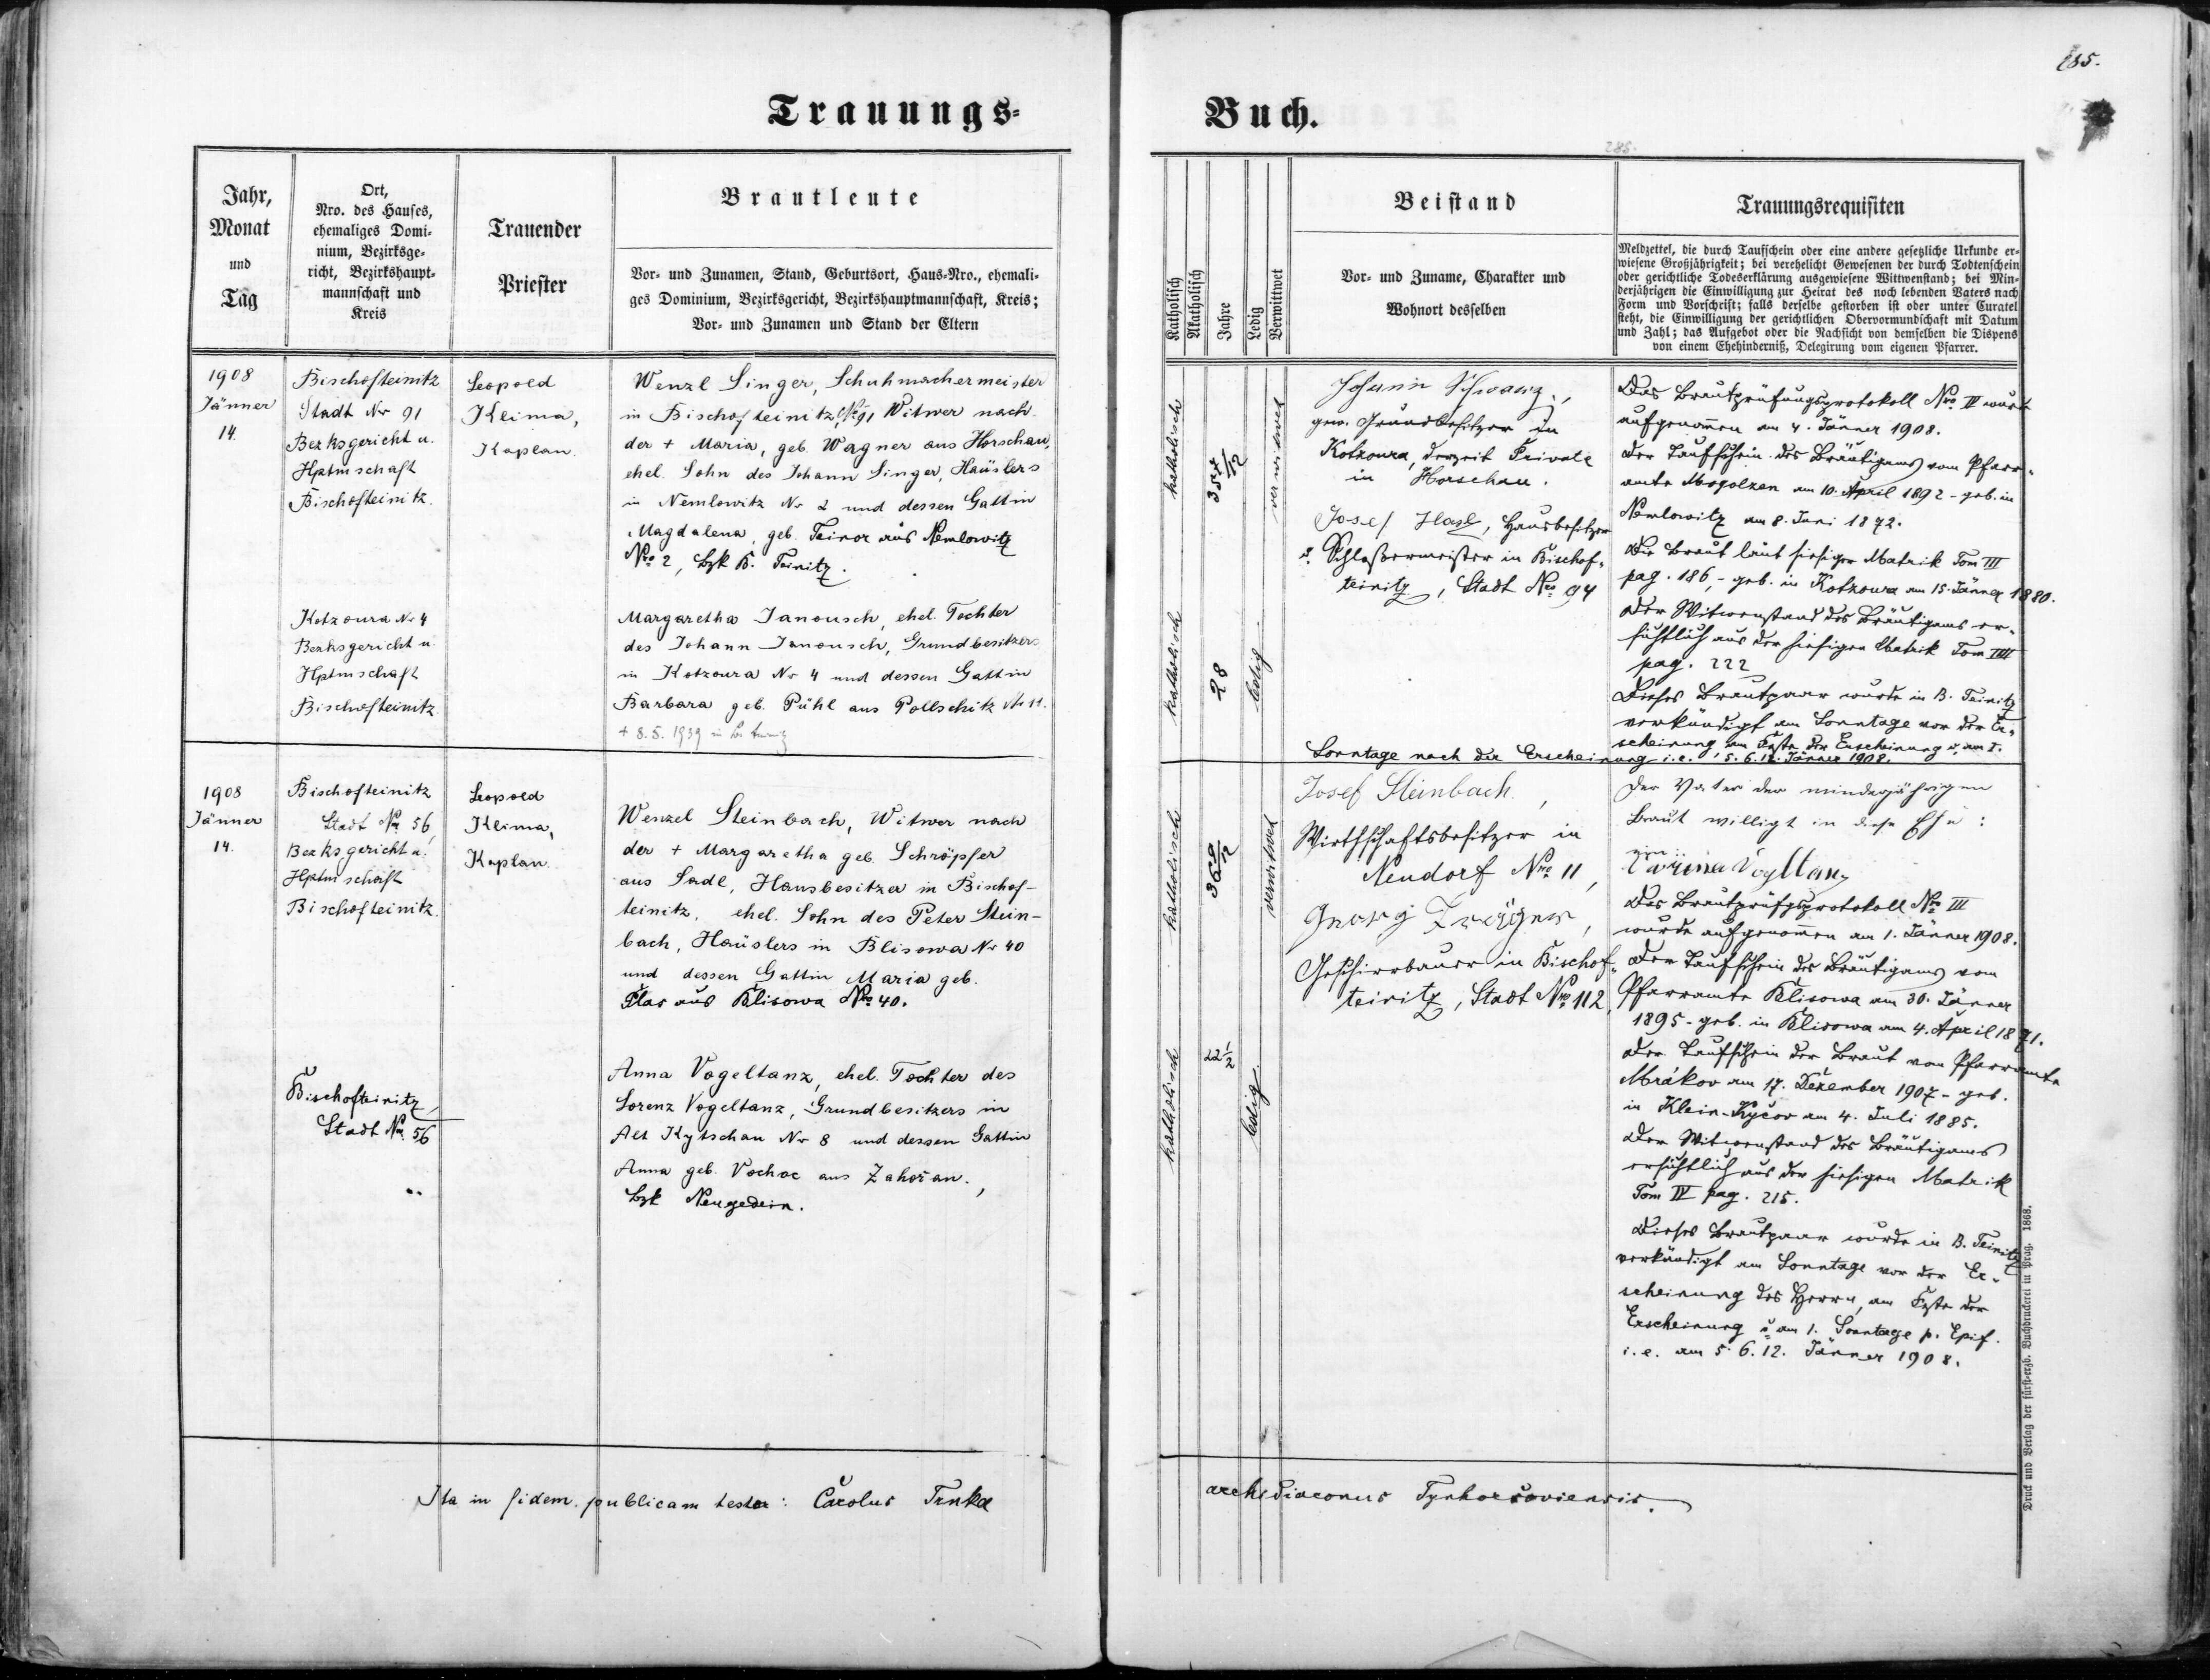 185.
Trauungs-
Buch.
285.
Jahr,
Monat
und
Tag
Ort,
Nro. des Hauses,
ehemaliges Domi-
nium, Bezirksge-
richt, Bezirkshaupt-
mannschaft und
Kreis
Trauender
Priester
Brautleute
Vor- und Zunamen, Stand, Geburtsort, Haus-Nro., ehemali-
ges Dominium, Bezirksgericht, Bezirkshauptmannschaft, Kreis;
Vor- und Zunamen und Stand der Eltern
Katholisch
Akatholisch
Jahre
Ledig
Verwittwet
Beistand
Vor- und Zuname, Charakter und
Wohnort desselben
Trauungsrequisiten
Meldzettel, die durch Taufschein oder eine andere gesetzliche Urkunde er-
wiesene Großjährigkeit; bei verehelicht Gewesenen der durch Todtenschein
oder gerichtliche Todeserklärung ausgewiesene Wittwenstand; bei Min-
derjährigen die Einwilligung zur Heirat des noch lebenden Vaters nach
Form und Vorschrift; falls derselbe gestorben ist oder unter Curatel
steht, die Einwilligung der gerichtlichen Obervormundschaft mit Datum
und Zahl; das Aufgebot oder die Nachsicht von demselben die Dispens
von einem Ehehinderniß, Delegirung vom eigenen Pfarrer.
1908
Jänner
14.
Bischofteinitz
Stadt Nr 91
Bezksgericht u.
Hptmschaft
Bischofteinitz.
Leopold
Klima,
Kaplan.
Wenzl Singer, Schuhmachermeister
in Bischofteinitz, No 91 Witwer nach
der + Maria, geb. Wagner aus Horschau,
ehel. Sohn des Johann Singer, Häuslers
in Nemlowitz Nr 2 und dessen Gattin
Magdalena, geb. Teinor aus Nemlowitz
Nro 2, Bzk B. Teinitz.
Kotzoura Nr 4
Bezksgericht u.
Hptmschaft
Bischofteinitz.
Margaretha Janousch, ehel. Tochter
des Johann Janousch, Grundbesitzers
in Kotzoura Nr 4 und dessen Gattin
Barbara geb. Pühl aus Pollschitz Nr 11.
+ 8. 5. 1939 in
katholisch
verwitwet
katholisch
28
ledig
Johann Schwarz,
gew. Grundbesitzer in
Kotzoura, derzeit Private
in Horschau.
Josef Hasl, Hausbesitzer
u. Schloßermeister in Bischof-
teinitz, Stadt Nro 94
Das Brautprüfungsprotokoll Nro IV wurde
aufgenommen am 4. Jänner 1908.
Der Taufschein des Bräutigams vom Pfarr-
amte Mogolzen am 10. April 1892 - geb. in
Nemlowitz am 8. Juni 1872.
Die Braut laut hiesiger Matrik Tom III
pag. 186, - geb. in Kotzoura am 15. Jänner 1880.
Der Witwenstand des Bräutigams er-
sichtlich aus der hiesigen Matrik Tom
pag. 222
Dieses Brautpaar wurde in B. Teinitz
verkündigt am Sonntage vor der Er-
scheinung, am Feste der Erscheinung u. am I.
Sonntage nach der Erscheinung i. e. 5. 6. 12. Jänner 1908.
1908
Jänner
14.
Bischofteinitz
Stadt No 56,
Bezksgericht u.
Hptmschaft
Bischofteinitz.
Leopold
Klima,
Kaplan.
Wenzel Steinbach, Witwer nach
der + Margaretha geb. Schröpfer
aus Sadl, Hausbesitzer in Bischof-
teinitz, ehel. Sohn des Peter Stein-
bach, Häuslers in Blisowa Nr 40
und dessen Gattin Maria geb.
Flor aus Blisowa Nro 40.
Bischofteinitz,
Stadt No 56
Anna Vogeltanz, ehel. Tochter des
Lorenz Vogeltanz, Grundbesitzers in
Alt Kytschau Nr 8 und dessen Gattin
Anna geb. Vochoc aus Zahořan.,
Bzk Neugedein.
katholisch
verwitwet
katholisch
22 1/2
ledig
Josef Steinbach,
Wirthschaftsbesitzer in
Neudorf Nro 11,
Georg
Geschirrbauer in Bischof-
teinitz, Stadt Nro 112.
Der Vater der minderjährigen
Braut willigt in diese Ehe:
Das Brautprüfgsprotokoll Nro III
wurde aufgenommen am 1. Jänner 1908.
Der Taufschein des Bräutigams vom
Pfarramte Blisowa am 30. Jänner
1895 - geb. in Blisowa am 4. April 1871.
Der Taufschein der Braut vom Pfarramte
Mrákov am 17. Dezember 1907 - geb.
in Klein-Kyčov am 4. Juli 1885.
Der Witwenstand des Bräutigams
ersichtlich aus der hiesigen Matrik
Tom IV pag. 215.
Dieses Brautpaar wurde in B. Teinitz
verkündigt am Sonntage vor der Er-
scheinung des Herrn, am Feste der
Erscheinung u. am 1. Sonntage p. Epif.
i. e. am 5. 6. 12. Jänner 1908.
Ita in fidem publicam testor: Carolus Trnka
archidiaconus Tynhorsoviensis.
Druck und Verlag der fürst-erzb. Buchdruckerei in Prag. 1868.